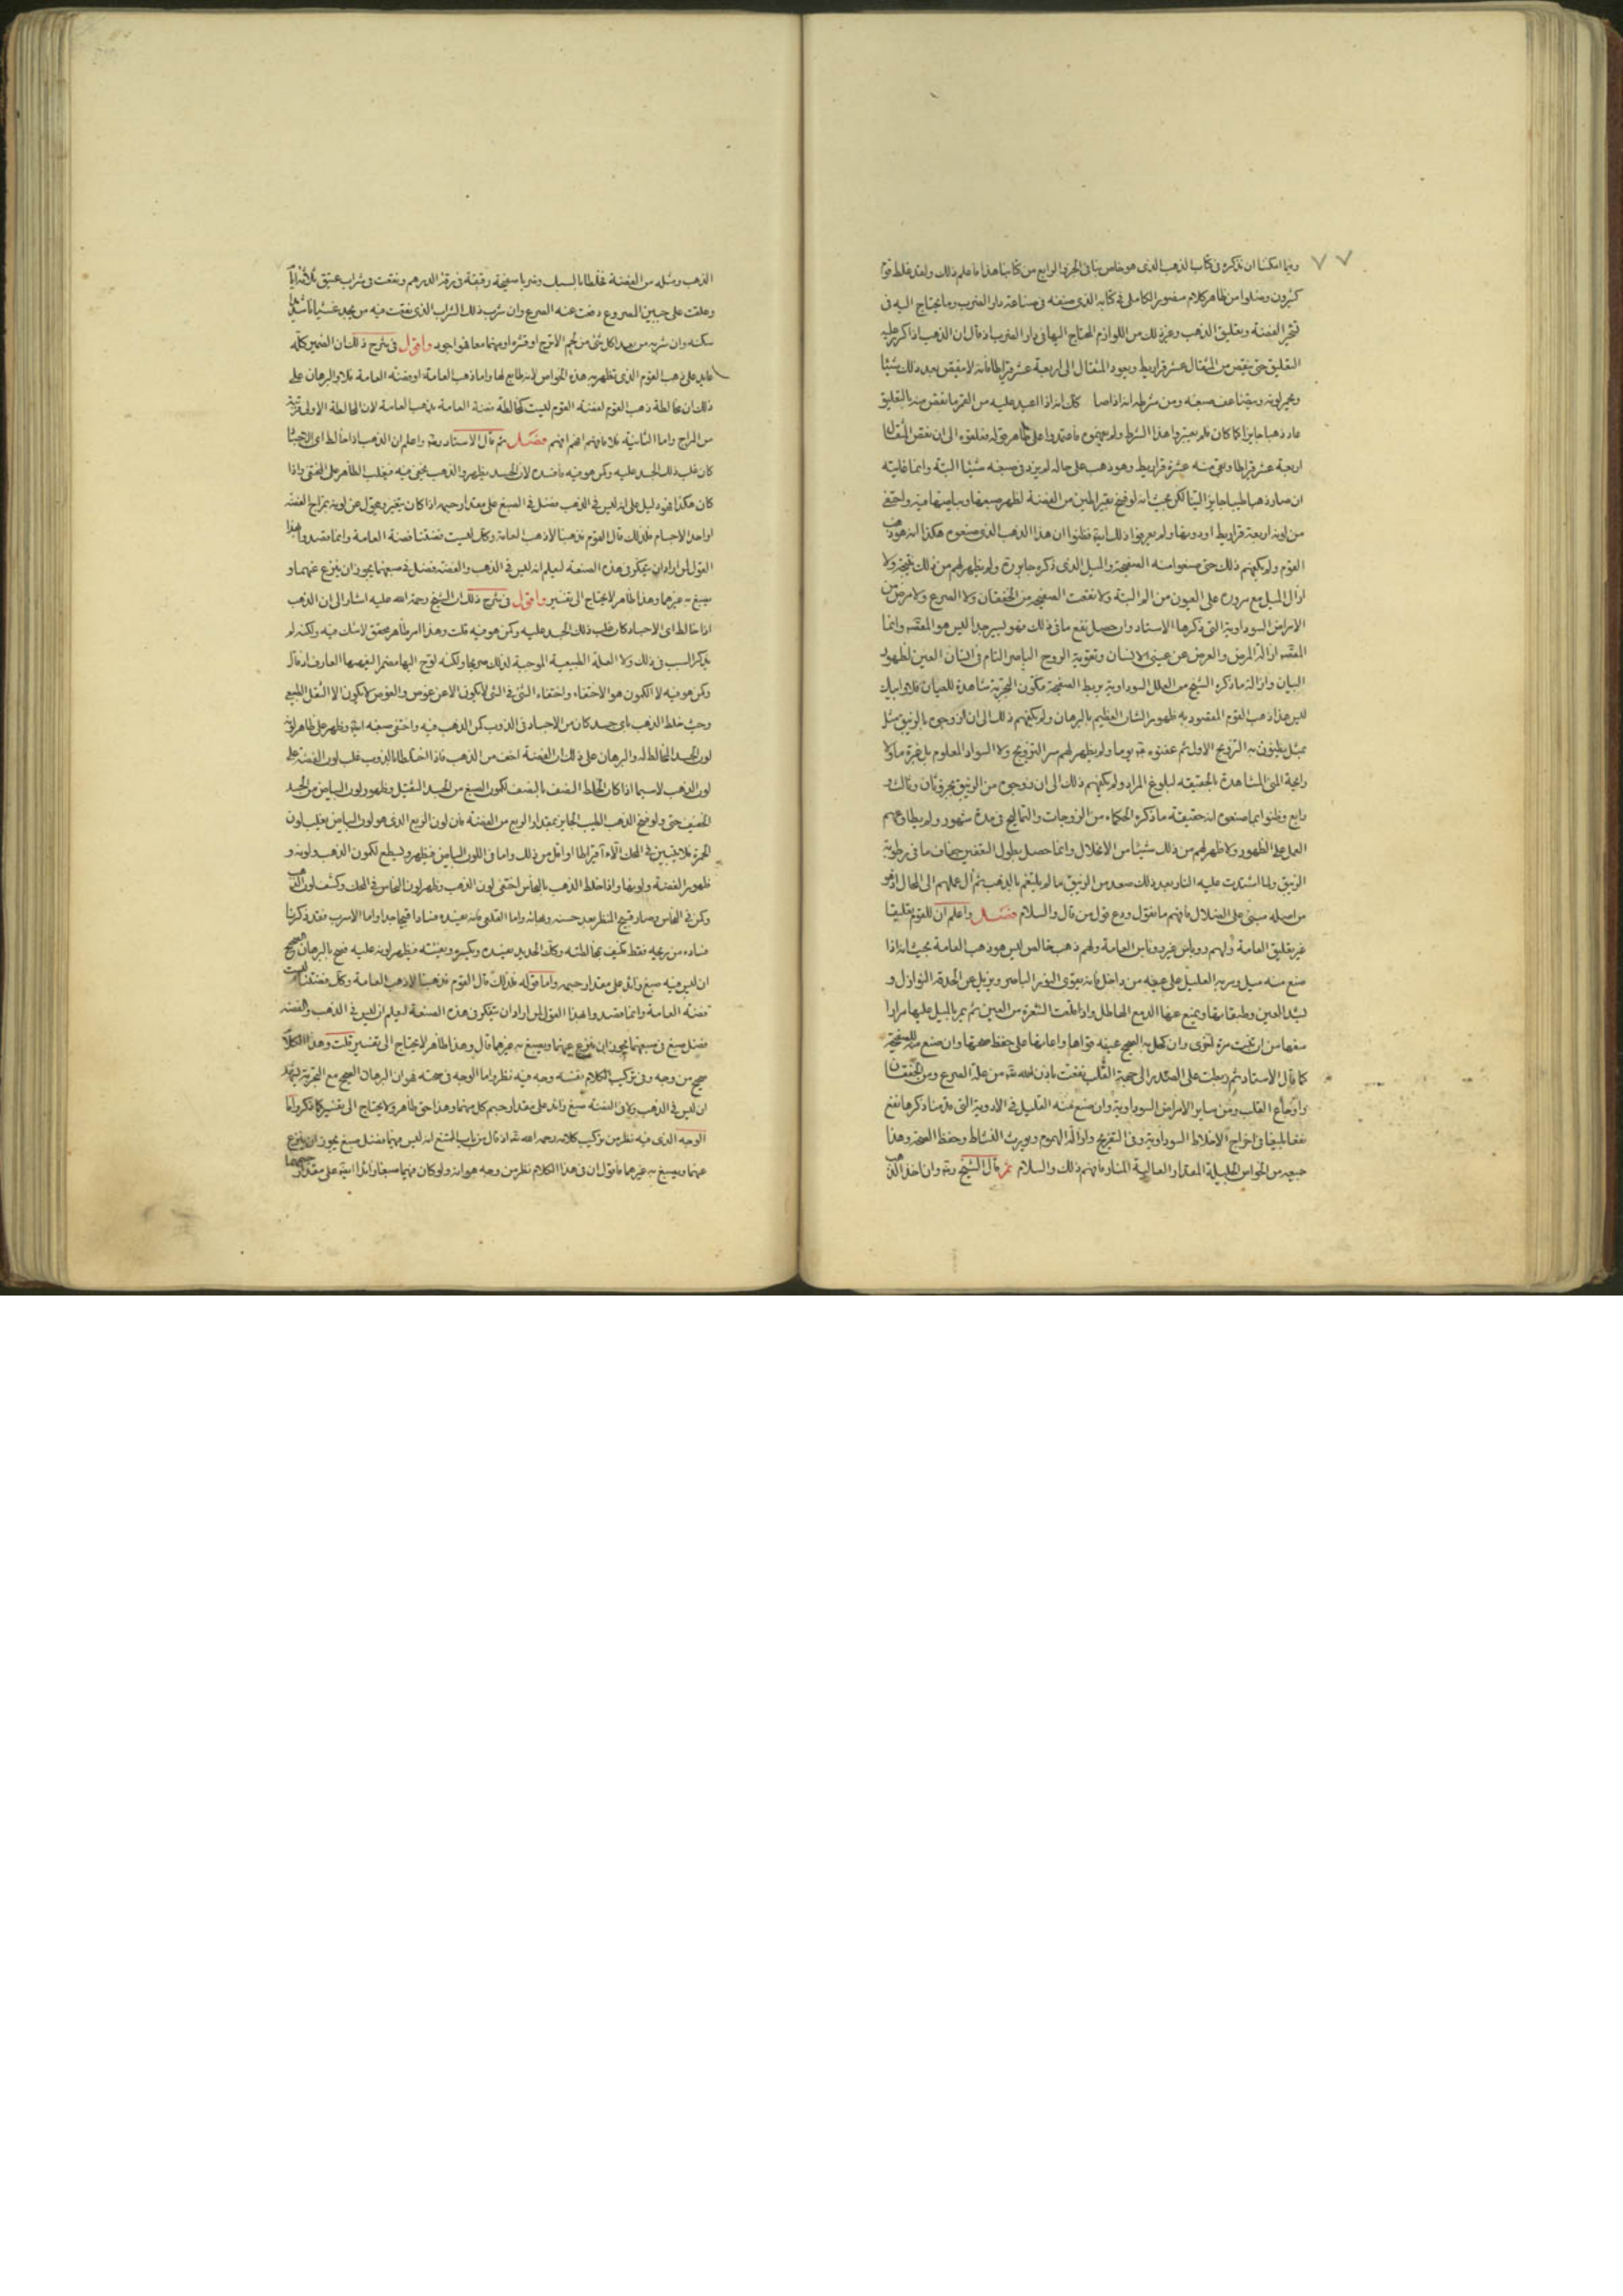 وفيما امكننا ان نذكره فى كتاب الذهب الذى هو خاص بنا فى الجزء الرابع من كتابنا هذا فاعلم ذلك ولقد غلط قوم
كثيرون وضلوا من ظاهر كلام منصور الكاملى فى كتابه الذى صنفه فى صناعة دار الضرب وما يحتاج اليه فى
الفضة وتعليق الذهب وغير ذلك من اللوازم المحتاج اليها فى دار الضرب اذ قال ان الذهب اذا كرر عليه
التعليق حتى ينقص من المثقال عشر قراريط ويعود المثقال الى اربعة عشر قيراطا فانه لا ينقص بعد ذلك شيئا
ويحمر لونه ومن شرطه انه اذا صار كذلك انه اذا اعيد عليه من القمر ما نقص منه بالتعليق
عاد ذهبا جايزا كما كان فلم يعتبروا هذا الشرط ولم يفهموه فاعتمدوا على ظاهر قوله فعلقوه الى ان نقص المثقال
اربعة عشر قيراطا وبقى منه عشرة قراريط وهو ذهب على حاله لم يزد فى صبغه شيئا البتة وانما غايته
ان صار ذهبا طيبا جايزا لينا لكن بحيث انه لو مزج بقيراطين من الفضة لظهر صبغها وبياضها فيه واختفى
من لونه اربعة قراريط او دونها ولم يعرفوا ذلك فظنوا ان هذا الذهب الذى صنعوه هكذا انه هو ذهب
القوم ولم يكفهم ذلك حتى صنعوا منه الصفيحة والميل الذى ذكره جابر ولم يظهر لهم من ذلك نتيجة ولا
ازال الميل مع مروره على العيون من الم البتة ولا نفعت الصفيحة من الخفقان ولا الصرع ولا مرض من
الامراض السوداوية التى ذكرها الاستاد وان حصل نفع ما فى ذلك فهو يسير جدا ليس هو المقصد وانما
المقصد ازالة المرض والعرض عن عينى الانسان وتقوية الروح الباصر التام فى انسان العين لظهور
البيان وازالة ما ذكره الشيخ من العلل السوداوية بربط الصفيحة فتكون التجربة شاهدة للعيان
ليس هذا ذهب القوم المقصود به ظهور الشان العظيم بالبرهان ولم يكفهم ذلك الى ان زوجوه بالزيبق مثل
بمثل يظنون به التزويج الاول ثم عفنوه يوما ولم يظهر لهم سر التزويج ولا السواد المعلوم
رايحة المنى المشاهدة بالحقيقة لبلوغ المراد ولم يكفهم ذلك الى ان زوجوه من الزيبق بجزو ثان وثالث و
رابع وظنوا بما صنعوه انه حقيقة ما ذكره الحكماء من الزوجات والتماليح فى مدة شهور ولم
العمل على الظهور ولا ظهر لهم من ذلك شيئا من الانحلال وانما حصل بطول التعفين جفاف ما فى رطوبة
الزيبق ولما اشتدت عليه النار بعد ذلك صعد من الزيبق ما لم يلتغم بالذهب ثم ال عملهم الى الحال
من اصله مبنى على الضلال فافهم ما نقول ودع قول من قال والسلام فصل واعلم ان للقوم تعليقا
غير تعليق العامة ولهم روباص غير روباص العامة ولهم ذهب خالص ليس هو ذهب العامة بحيث انه اذا
صنع منه ميل ومر به العليل على عينه من داخل فانه يقوى النور الباصر ويزيل عن الحدقة النوازل و
يشد العين وطبقاتها ويمنع عنها الدمع الهاطل واذا قلعت الشعرة من العين ثم يمر بالميل عليها مرارا
منعها من ان تنبت مرة اخرى وان كحل به الصحيح عينه قواها واعانها على حفظ صحتها وان صنع منه الصفيحة
كما قال الاستاد ثم جعلت على الصدر الى جهة القلب نفعت باذن الله تعالى من علة الصرع ومن الخفقان
واوجاع القلب ومن ساير الامراض السوداوية وان صنع منه القليل فى الادوية التى قدمنا ذكرها نفع
نفعا بليغا فى اخراج الاخلاط السوداوية وفى التفريح وازالة الهموم ويورث النشاط وحفظ الصحة وهذا
جميعه من الخواص الجليلة المقدار العالية المنار فافهم ذلك والسلام ثم قال الشيخ وان اخذ الذهب
الذهب ومثله من الفضة خلطا بالسبك وضربا صفيحة رقيقة فى رقة الدرهم ونقعت فى شراب عتيق ثلاثة ايام
وعلقت على جبين المصروع دفعت عنه الصرع وان شرب ذلك الشراب الذى نقعت فيه من يجد غشيانا شديدا
سكنه وان شربه من بعد اكل شئ من لحم الاترج او قشره او منهما معا فهو اجود واقول فى شرح ذلك ان الضمير كله
عايد على ذهب القوم الذى تظهر به هذه الخواص لانه طابع لها واما ذهب العامة او فضة العامة فلا والبرهان على
ذلك ان مخالطة ذهب القوم لفضة القوم ليست كمخالطة فضة العامة بذهب العامة لان المخالطة الاولى قريبة
من المزاج واما الثانية فلا فافهم افهم افهم فصل ثم قال الاستاد واعلم ان الذهب اذا خالط اى الاجساد
كان غلب ذلك الجسد عليه وكمن هو فيه فافسده لان الجسد يظهر والذهب يختفى فيه فيغلب الظاهر على المختفى واذا
كان هكذا فهو دليل على انه ليس فى الذهب فضل فى الصبغ على مقدار جسمه اذا كان يتغير ويحول عن لونه بمزاج الفضة
او احد الاجسام فلذلك قال القوم ذهبنا لا ذهب العامة وكذلك ليست فضتنا فضة العامة وانما قصدوا بهذا
القول لمن اراد ان يفكر فى هذه الصنعة ليعلم انه ليس فى الذهب والفضة فضل فى صبغهما يجوز ان ينزع عنهما و
يصبغ به غيرهما وهذا ظاهر لا يحتاج الى تفسير واقول فى شرح ذلك ان الشيخ رحمة الله عليه اشار الى ان الذهب
اذا خالط اى الاجساد كان غلب ذلك الجسد عليه وكمن هو فيه قلت وهذا امر ظاهر محقق لا شك فيه ولكنه لم
يذكر السبب فى ذلك ولا العلة الطبيعية الموجبة لذلك صريحا ولكنه لوح اليها مضمرا ليفهمها العارف اذ قال
وكمن هو فيه لان الكمون هو الاختفاء واختفاء الشئ فى الشئ لا يكون الا عن غوص والغوص لا يكون الا الثقل الطبيعى
وحيث خلط الذهب باى جسد كان من الاجساد فى الذوب كمن الذهب فيه واختفى صبغه وظهر على ظاهر لونه
لون الجسد المخالط له والبرهان على ذلك ان الفضة اخف من الذهب فاذا اختلطا بالذوب غلب لون الفضة على
لون الذهب لاسيما اذا كان الخلط النصف بالنصف لكون الصبغ من الجسد الثقيل وظهور لون البياض من الجسد
الخفيف حتى ولو مزج الذهب الطيب الجايز بمقدار الربع من الفضة فان لون الربع الذى هو لون البياض يغلب لون
الحمرة فلا يتبين فى المحك الا قيراطا او اقل من ذلك واما فى اللون البياض فيظهر ويسطع لكون الذهب ولونه و
ظهور الفضة ولونها واذا خلط الذهب بالنحاس اختفى لون الذهب وظهر لون النحاس فى المحك وكسف لون الذهب
وكمن فى النحاس وصار قبيح المنظر بعد حسنه وبهائه واما القلعى فانه يفسده فسادا قبيحا جدا واما الاسرب فقد ذكرنا
فساده من ريحه فقط فكيف بمخالطته وكذلك الحديد يفسده ويكسره ويفتته فيظهر لونه عليه فصح بالبرهان الصحيح
ان ليس فيه صبغ زائد على مقدار جسمه واما قوله فلذلك قال القوم ذهبنا لا ذهب العامة وكذلك فضتنا ليست
فضة العامة وانما قصدوا بهذا القول لمن اراد ان يفكر فى هذه الصنعة ليعلم ان ليس فى الذهب والفضة
فضل صبغ فى صبغهما يجوز ان ينزع عنهما ويصبغ به غيرهما قال وهذا ظاهر لا يحتاج الى تفسير قلت وهذا الكلام
صحيح من وجه وفى تركيب الكلام نفسه وجه فيه نظر واما الوجه فى صحته فهو ان البرهان الصحيح مع التجربة
ان ليس فى الذهب ولا فى الفضة صبغ زائد على مقدار جسم كل منهما وهذا حق ظاهر ولا يحتاج الى تفسير كما ذكر واما
الوجه الذى فيه نظر من تركيب كلامه رحمه الله تعالى اذ قال من باب المتنع انه ليس فيهما فضل صبغ يجوز ان ينزع
عنهما ويصبغ به غيرهما فاقول ان فى هذا الكلام نظر من وجه هو انه ولو كان فيهما صبغا زائدا على مقدار جسمهما